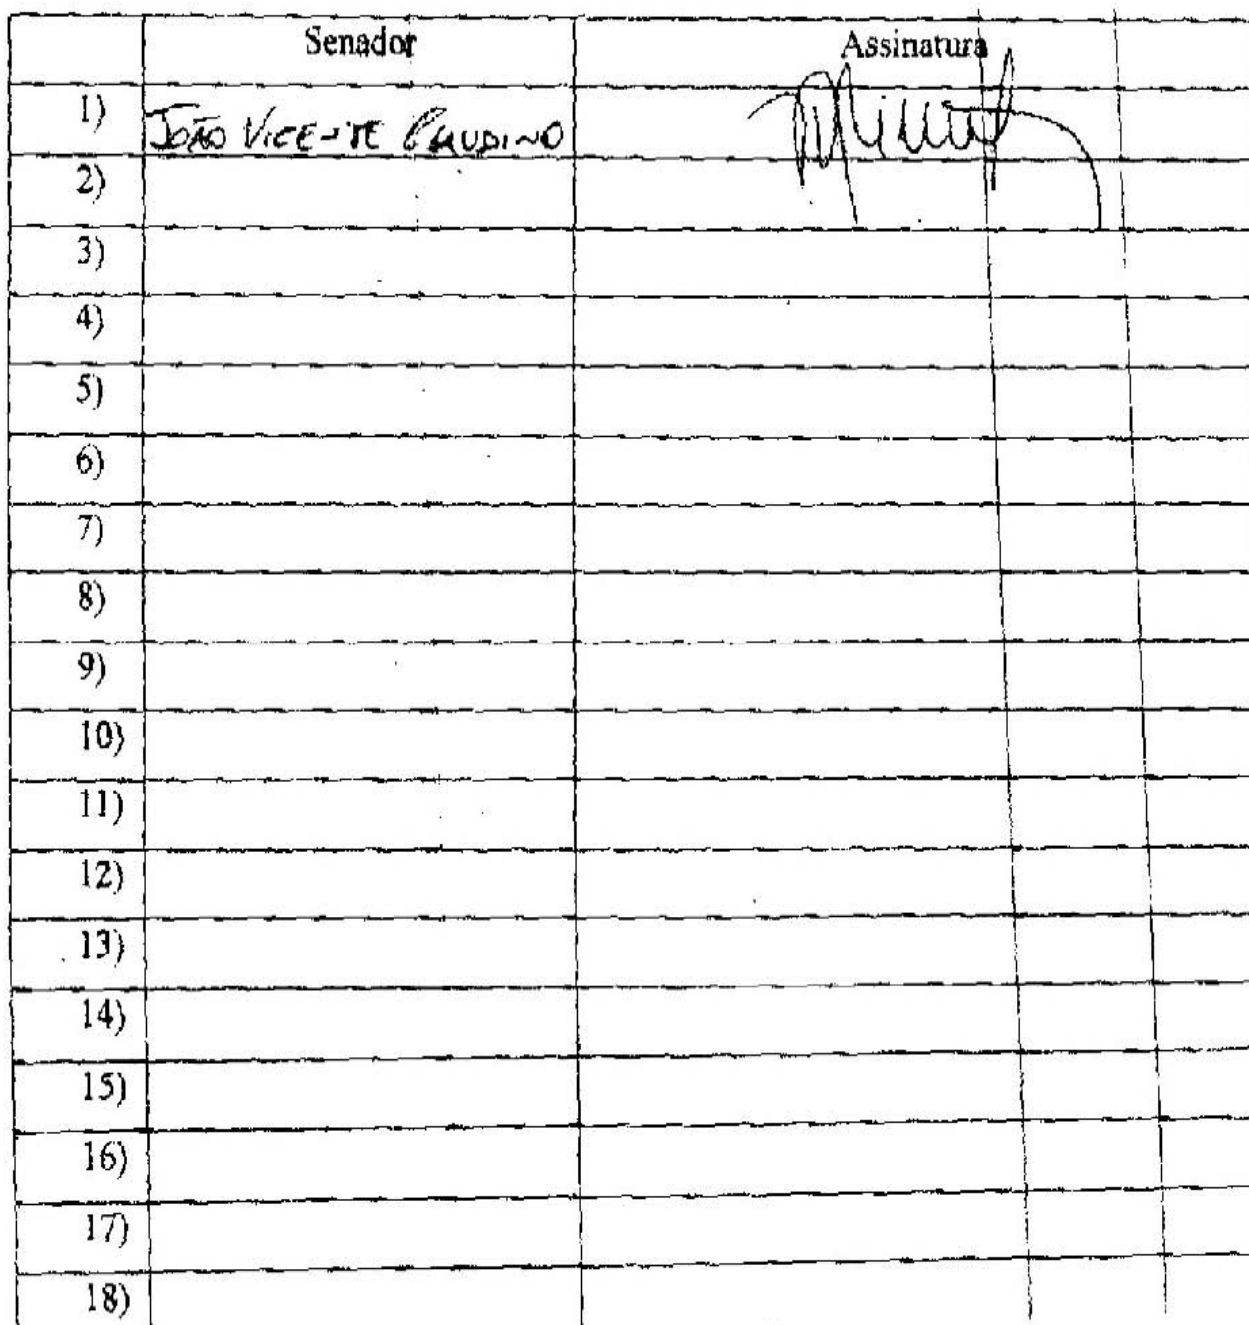 Senador Assinatura
1) JOÃO VICENTE CLAUDINO
2)
3)
4)
5)
6)
7)
8)
9)
10)
11)
12)
13)
14)
15)
16)
17)
18)